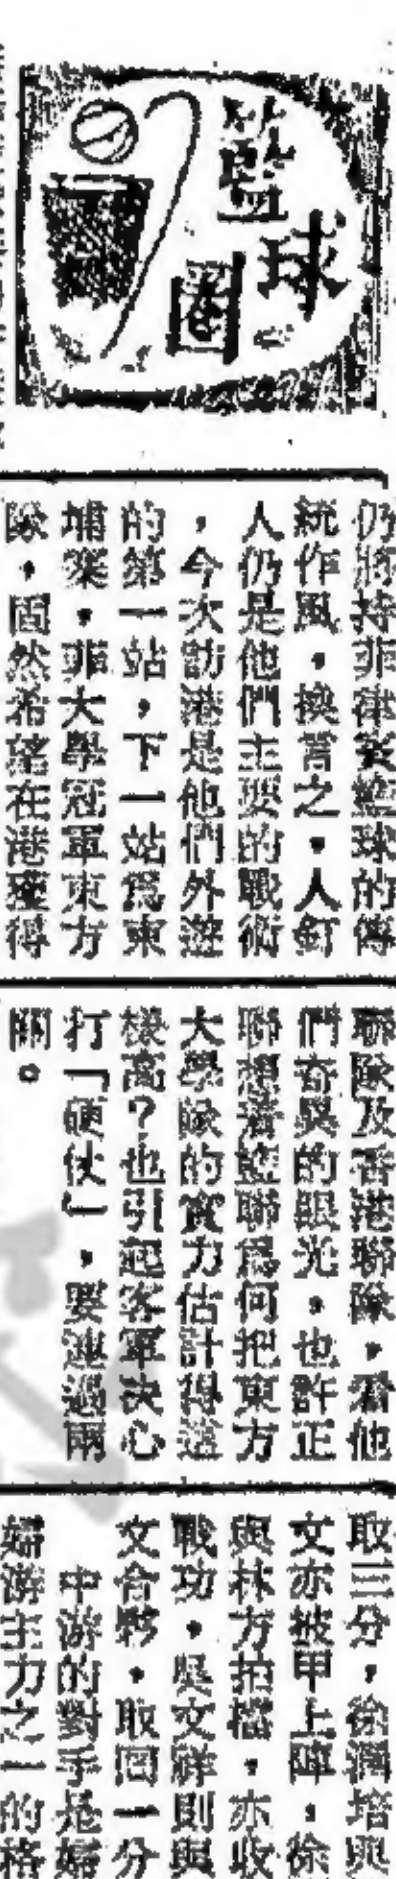 籃球圈
仍將持非律賓籃球的傳
統作風，換言之，人釘
人仍是他們主要的戰術
，今次訪港是他們外遊
的第一站，下一站爲東
埔寨，非大學冠軍東方
隊，固然希望在港獲得
聯隊及香港聯隊，看他
們奇異的眼光，也許正
聯想着籃聯爲何把東方
大學隊的實力估計得這
樣高？也引起客軍決心
打「硬仗」，要連過兩
關。
取三分，徐潤培與
文亦被甲上陣，徐
與林方拍檔，亦收
戰功，吳文祥則與
文合夥，取回一分
中游的對手是嬉
嬉游主力之一的格